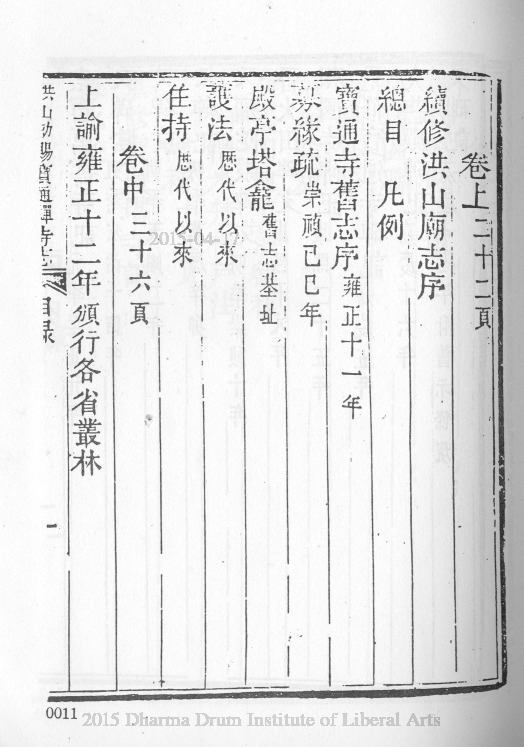 卷上二十二頁
續修洪山廟志序
總目 凡例
寶通寺舊志序雍正十一年
募緣疏崇禎己巳年
殿亭塔龕舊志基址
護法歷代以來
住持歷代以來
卷中三十六頁
上諭雍正十二年頒行各省叢林
洪山勅賜寶通禪寺志 目录 一
2015-04-
0011
2015 Dharma Drum Institute of Liberal Arts